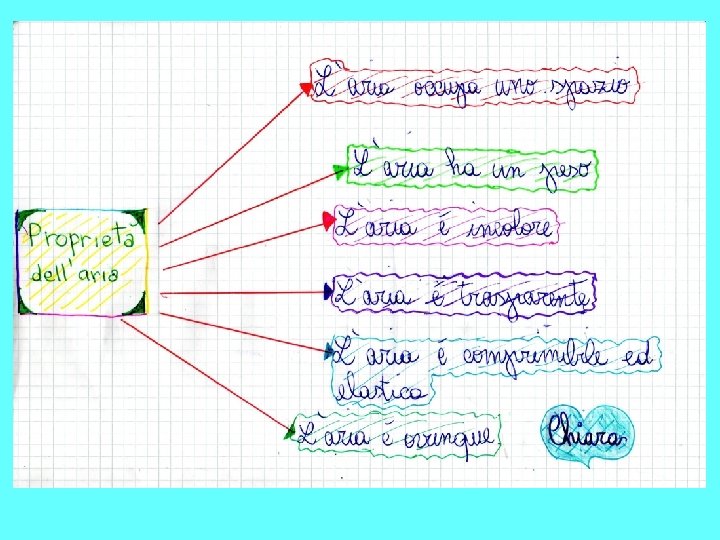 L'aria occupa uno spazio
L'aria ha un peso
L'aria è incolore
Proprietà
dell'aria
L'aria è trasparente
L'aria è comprimibile ed
elastica
L'aria è ovunque
Chiara